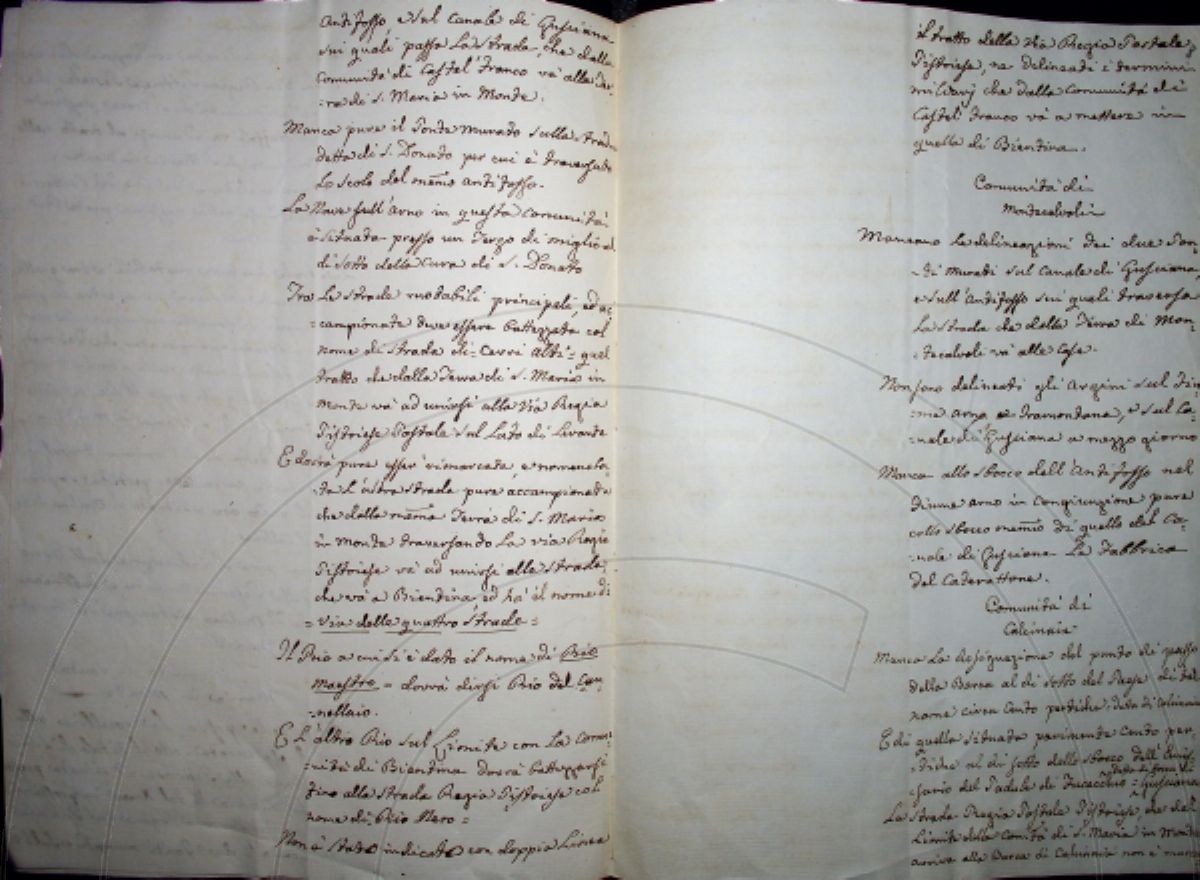 Antifosso, e sul Canale di Gusciana
sui quali passa la strada, che dalla
Comunità di Castel Franco và alla Ter-
=ra di S. Maria in Monte.
Manca pure il Ponte murato sulla strada
detta di S. Donato per cui è traversato
lo scolo del mem̃o antifosso.
La Nave sull'Arno in questa Comunità
è situata presso un Terzo di miglio al
di sotto della Cura di S. Donato
Tra le strade ruotabili principali, ed ac
=campionate deve essere battezzata col
nome di strada di=Cerri Alti=quel
tratto che dalla Terra di S. Maria in
Monte và ad unirsi alla Via Regia
Pistoiese Postale sul lato di Levante
E dovrà pure esser rimarcata, e nomencla-
ta l'altra strada pure accampionata
che dalla mem̃a Terra di S. Maria
in Monte traversando la via Regia
Pistoiese và ad unirsi alla strada,
che và a Bientina ed hà il nome di
=Via delle quattro Strade=
Il Rio a cui si è dato il nome di Rio
Maestro = dovrà dirsi Rio del
=nellaio.
E l'altro Rio sul Limite con la Comu=
=nità di Bientina dovrà battezzarsi
fino alla strada Regia Pistoiese col
nome di, Rio Nero=
Non è stato indicato con doppia Linea
il tratto della Via Regia Postale
Pistoiese, ne delineati i termini
miliarj che dalla Comunità di
Castel Franco và a mettere in
quella di Bientina.
Comunità di
Montecalvoli
Mancano le delineazioni dei due Pon
=ti murati sul Canale di Gusciana,
e sull'Antifosso sui quali traversa
la strada che dalla Terra di Mon
=tecalvoli và alle Case.
Non sono delineati gli argini sul Fiu
=me Arno a tramontana, e sul Ca=
=nale di Gusciana a mezzo giorno
Manca allo sbocco dell'Antifosso nel
Fiume Arno in congiunzione pure
collo sbocco mem̃o di quello del Ca=
=nale di Gusciana la Fabbrica
del Caterattone.
Comunità di
Calcinaia
Manca la designazione del punto di passo
della Barca al di sotto del Paese di tal
nome circa Cento pertiche, detta di Calcinaia
E di quella situata parimente Cento per
=tiche al di sotto dello sbocco dell'Emis-
=sario del Padule di Fucecchio = Gusciana
La Strada Regia Postale Pistoiese, che dal
Limite della Com̃tà di S. Maria in Monte
arriva alla Barca di Calcinaia non è